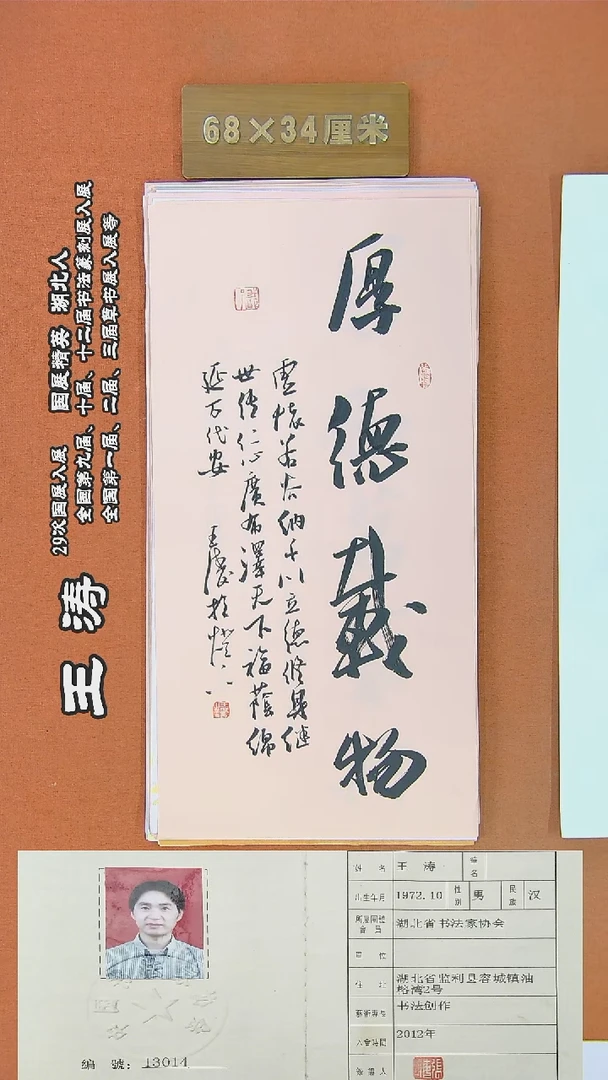 68×34厘米
厚德载物
虚怀若谷纳千川立德修身继
世传仁心广布泽天下福荫绵
延万代安 王涛
王涛
29次国展入展 国展精英 湖北人
全国第九届、十届、十二届书法篆刻展入展
全国第一届、二届、三届草书展入展等
姓名 王涛
出生年月 1972.10 性别 男 民族 汉
湖北省书法家协会
单位
住址 湖北省监利县容城镇油
榨湾2号
书法创作
入会時間 2012年
编號：13014